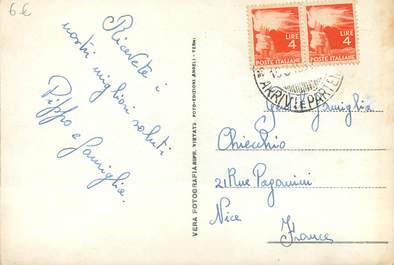 6€
Ricevete i
nostri migliori saluti
Pippo e famiglia.
VERA FOTOGRAFIA RIPR. VIETATA FOTO-EDIZIONI ANGELI - TERNI
LIRE
4
POSTE ITALIANE
LIRE
4
POSTE ITALIANE
ARRIVI E PARTENZE
Famiglia
Chiecchio
21 Rue Paganini
Nice
France